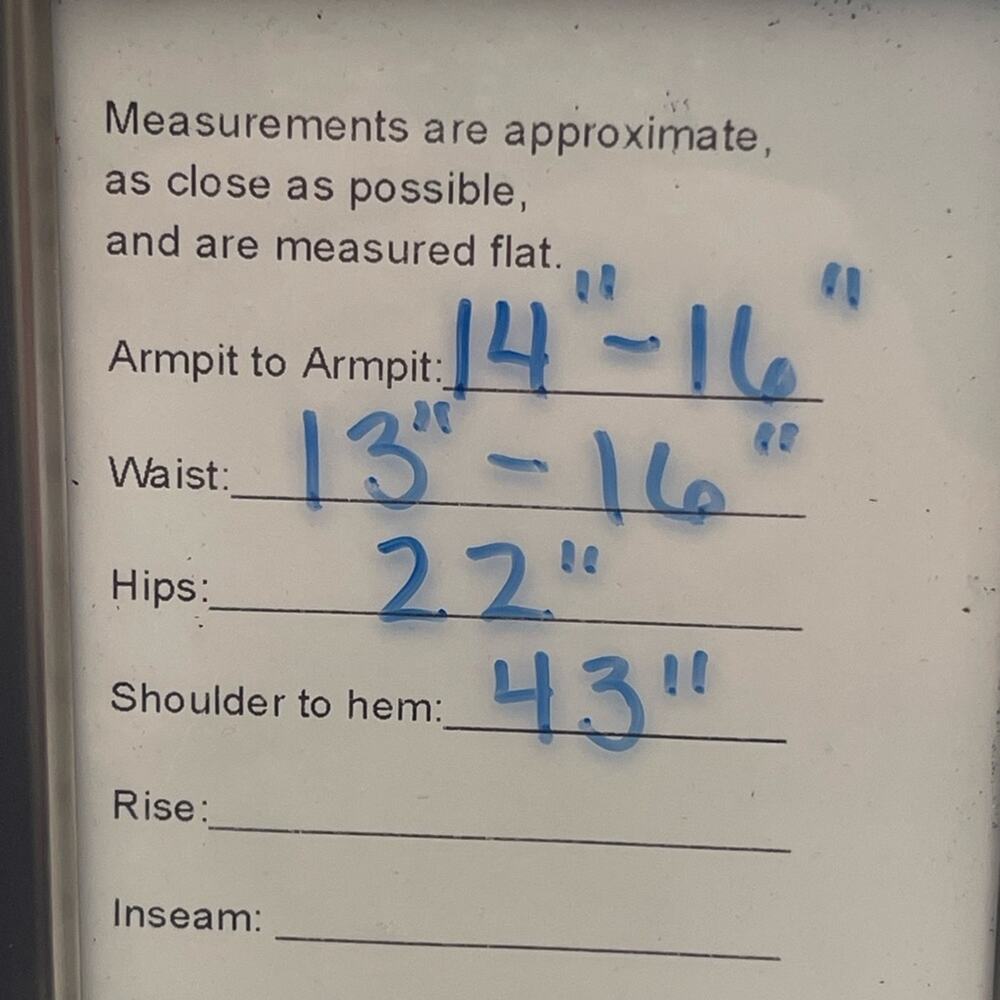 Measurements are approximate,
as close as possible,
and are measured flat.
Armpit to Armpit: 14" - 16"
Waist: 13" - 16"
Hips: 22"
Shoulder to hem: 43"
Rise:
Inseam: